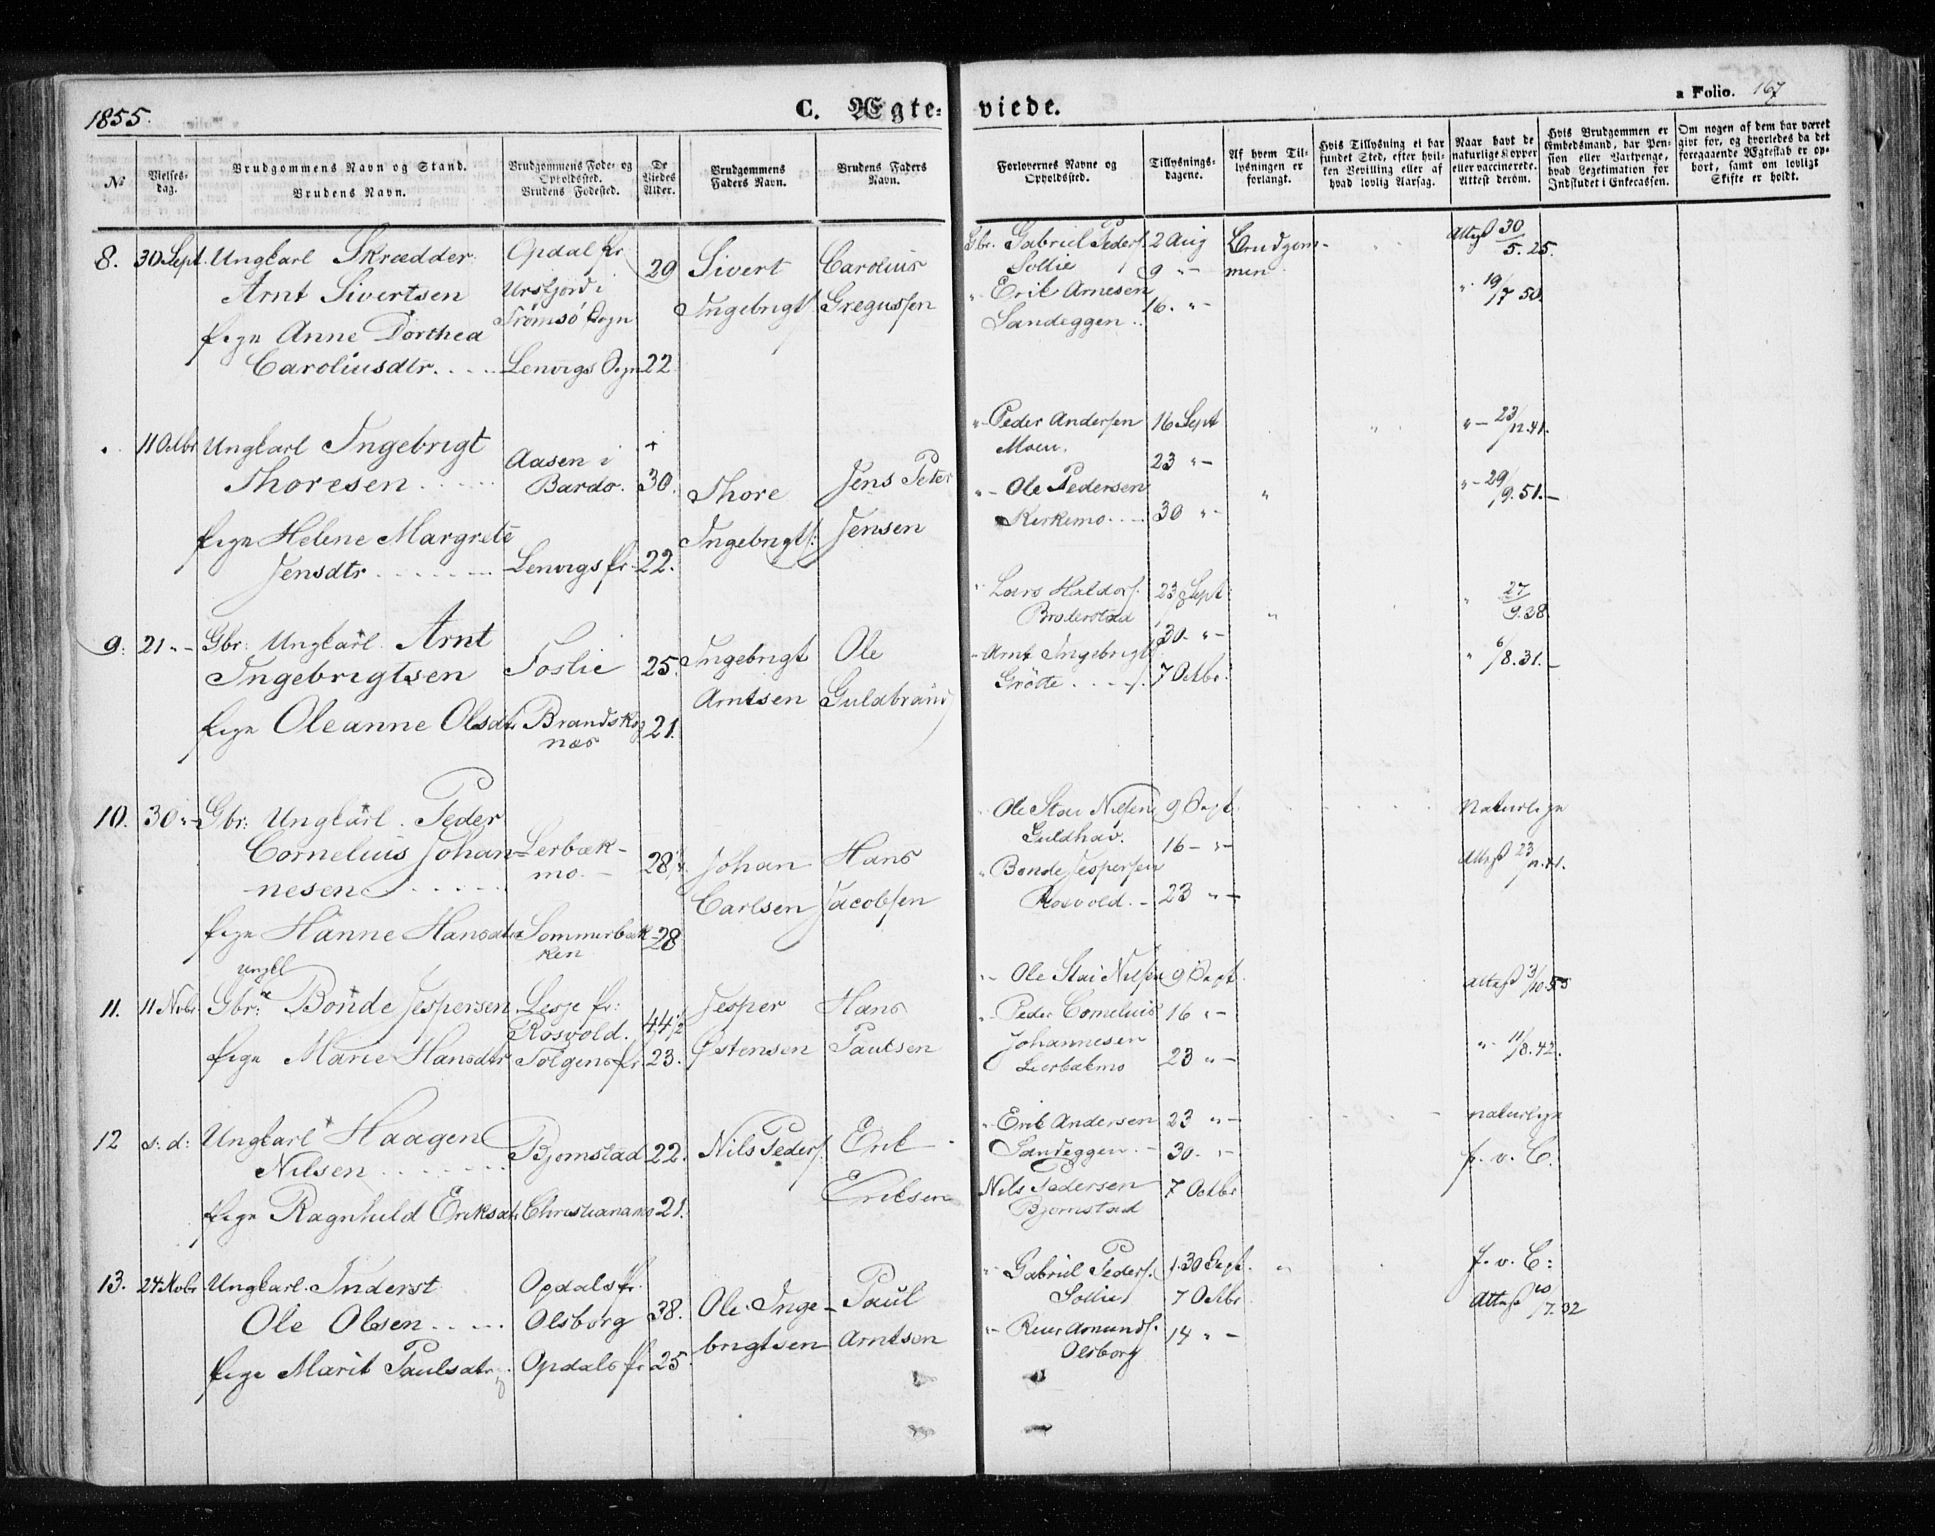 1855.
C. Ægte-
viede.
a Folio. 167
No
Vielses-
dag.
Brudgommens Navn og Stand.
Brudens Navn.
Brudgommens Føde- og
Opholdssted.
Brudens Fødested.
De
Viedes
Alder.
Brudgommens
Faders Navn.
Brudens Faders
Navn.
Forlovernes Navne og
Opholdssted.
Tillysnings-
dagene.
Af hvem Til-
lysningen er
forlangt.
Hvis Tillysning ei har
fundet Sted, efter hvil-
ken Bevilling eller af
hvad lovlig Aarsag.
Naar havt de
naturlige Kopper
eller vaccinerede.
Attest derom.
Hvis Brudgommen er
Embedsmand, har Pen-
sion eller Vartpenge,
hvad Legetimation for
Indskudet i Enkecassen.
Om nogen af dem har været
givt før, og hvorledes da det
foregaaende Ægteskab er op-
hørt, samt om lovligt
Skifte er holdt.
8. 30 Sept. Ungkarl Skrædder
Arnt Sivertsen
Pige Anne Dorthea
Caroliusdtr.
Opdal Pr
Ursfjord i
Tromsø Sogn
Lenvigs Sogn
29
22
Sivert
Ingebrigts.
Carolius
Gregussen
Gbr. Gabriel Peders.
Sollie
" Erik Arnesen
Sandeggen
2 Aug
9 " -
16. " -
Brudgom-
men
Attest 30/5. 25.
" 19/7 50.
11 Octbr Ungkarl Ingebrigt
Thoresen
Pige Helene Margrete
Jensdtr
Aasen i
Bardo.
Lenvigs Pr.
30.
22.
Thore
Ingebrigts:
Jens Peter
Jensen
" Peder Andersen
Moen.
" - Ole Pedersen
Kirkemo
16 Sept
23 " -
30 " -
"
" - 23/12 41.
" - 29/9. 51. -
9. 21 " - Gbr: Ungkarl. Arnt
Ingebrigtsen
Pige Oleanne Olsdtr
Foslie
Brandskog
næs
25.
21.
Ingebrigt
Arntsen
Ole
Guldbrand
" Lars Haldors.
Broderstad
- Arnt Ingebrigts.
Grøtte
23 Sept
30. " -
7 Octbr.
"
" 27/9.38.
" 6/8. 31. -
10. 30 " - Gbr: Ungkarl. Peder
Cornelius Johan-
nesen
Pige Hanne Hansdtr
Lerbæk-
mo. -
Sommerbæk-
ken
28
28
Johan
Carlsen
Hans
Jacobsen
Ole Stai Nilsen
Guldhav.
" Bonde Jespersen
Rosvold. -
9 Sept.
16 - " -
23 " -
Naturlige
Attest 23/12.41.
Ungkl
11. 11 Nvbr. Gbr: Bonde Jespersen
Pige Marie Hansdtr
Lesje Pr:
Rosvold.
Tolgens Pr
44 1/2
23.
Jesper
Østensen
Hans
Paulsen
" - Ole Stai Nilsen
" Peder Cornelius
Johannesen
Lerbakmo
9 Sept.
16 " -
23 " -
Attest 3/10. 55
" - 11/8. 42.
12 s: d: Ungkarl Haagen
Nilsen
Pige Ragnhild Eriksdtr
Bjørnstad
Christianamo
22.
21.
Nils Peders.
Erik
Eriksen
" Erik Andersen
Sandeggen. -
Nils Pedersen
Bjørnstad
23 " -
30. " -
7 Octbr
naturlige
f. v. C.
13. 24 Nvbr. Ungkarl. Inderst
Ole Olsen
Pige Marit Paulsdtr
Opdals Pr.
Olsborg
Opdals Pr
38.
25.
Ole Inge-
brigtsen
Paul
Arntsen
" Gabriel Peders.
Sollie
" - Amunds.
Olsborg
30 Sept.
7 Octbr
14 " -
"
f. v. C:
Attest 20/7. 32